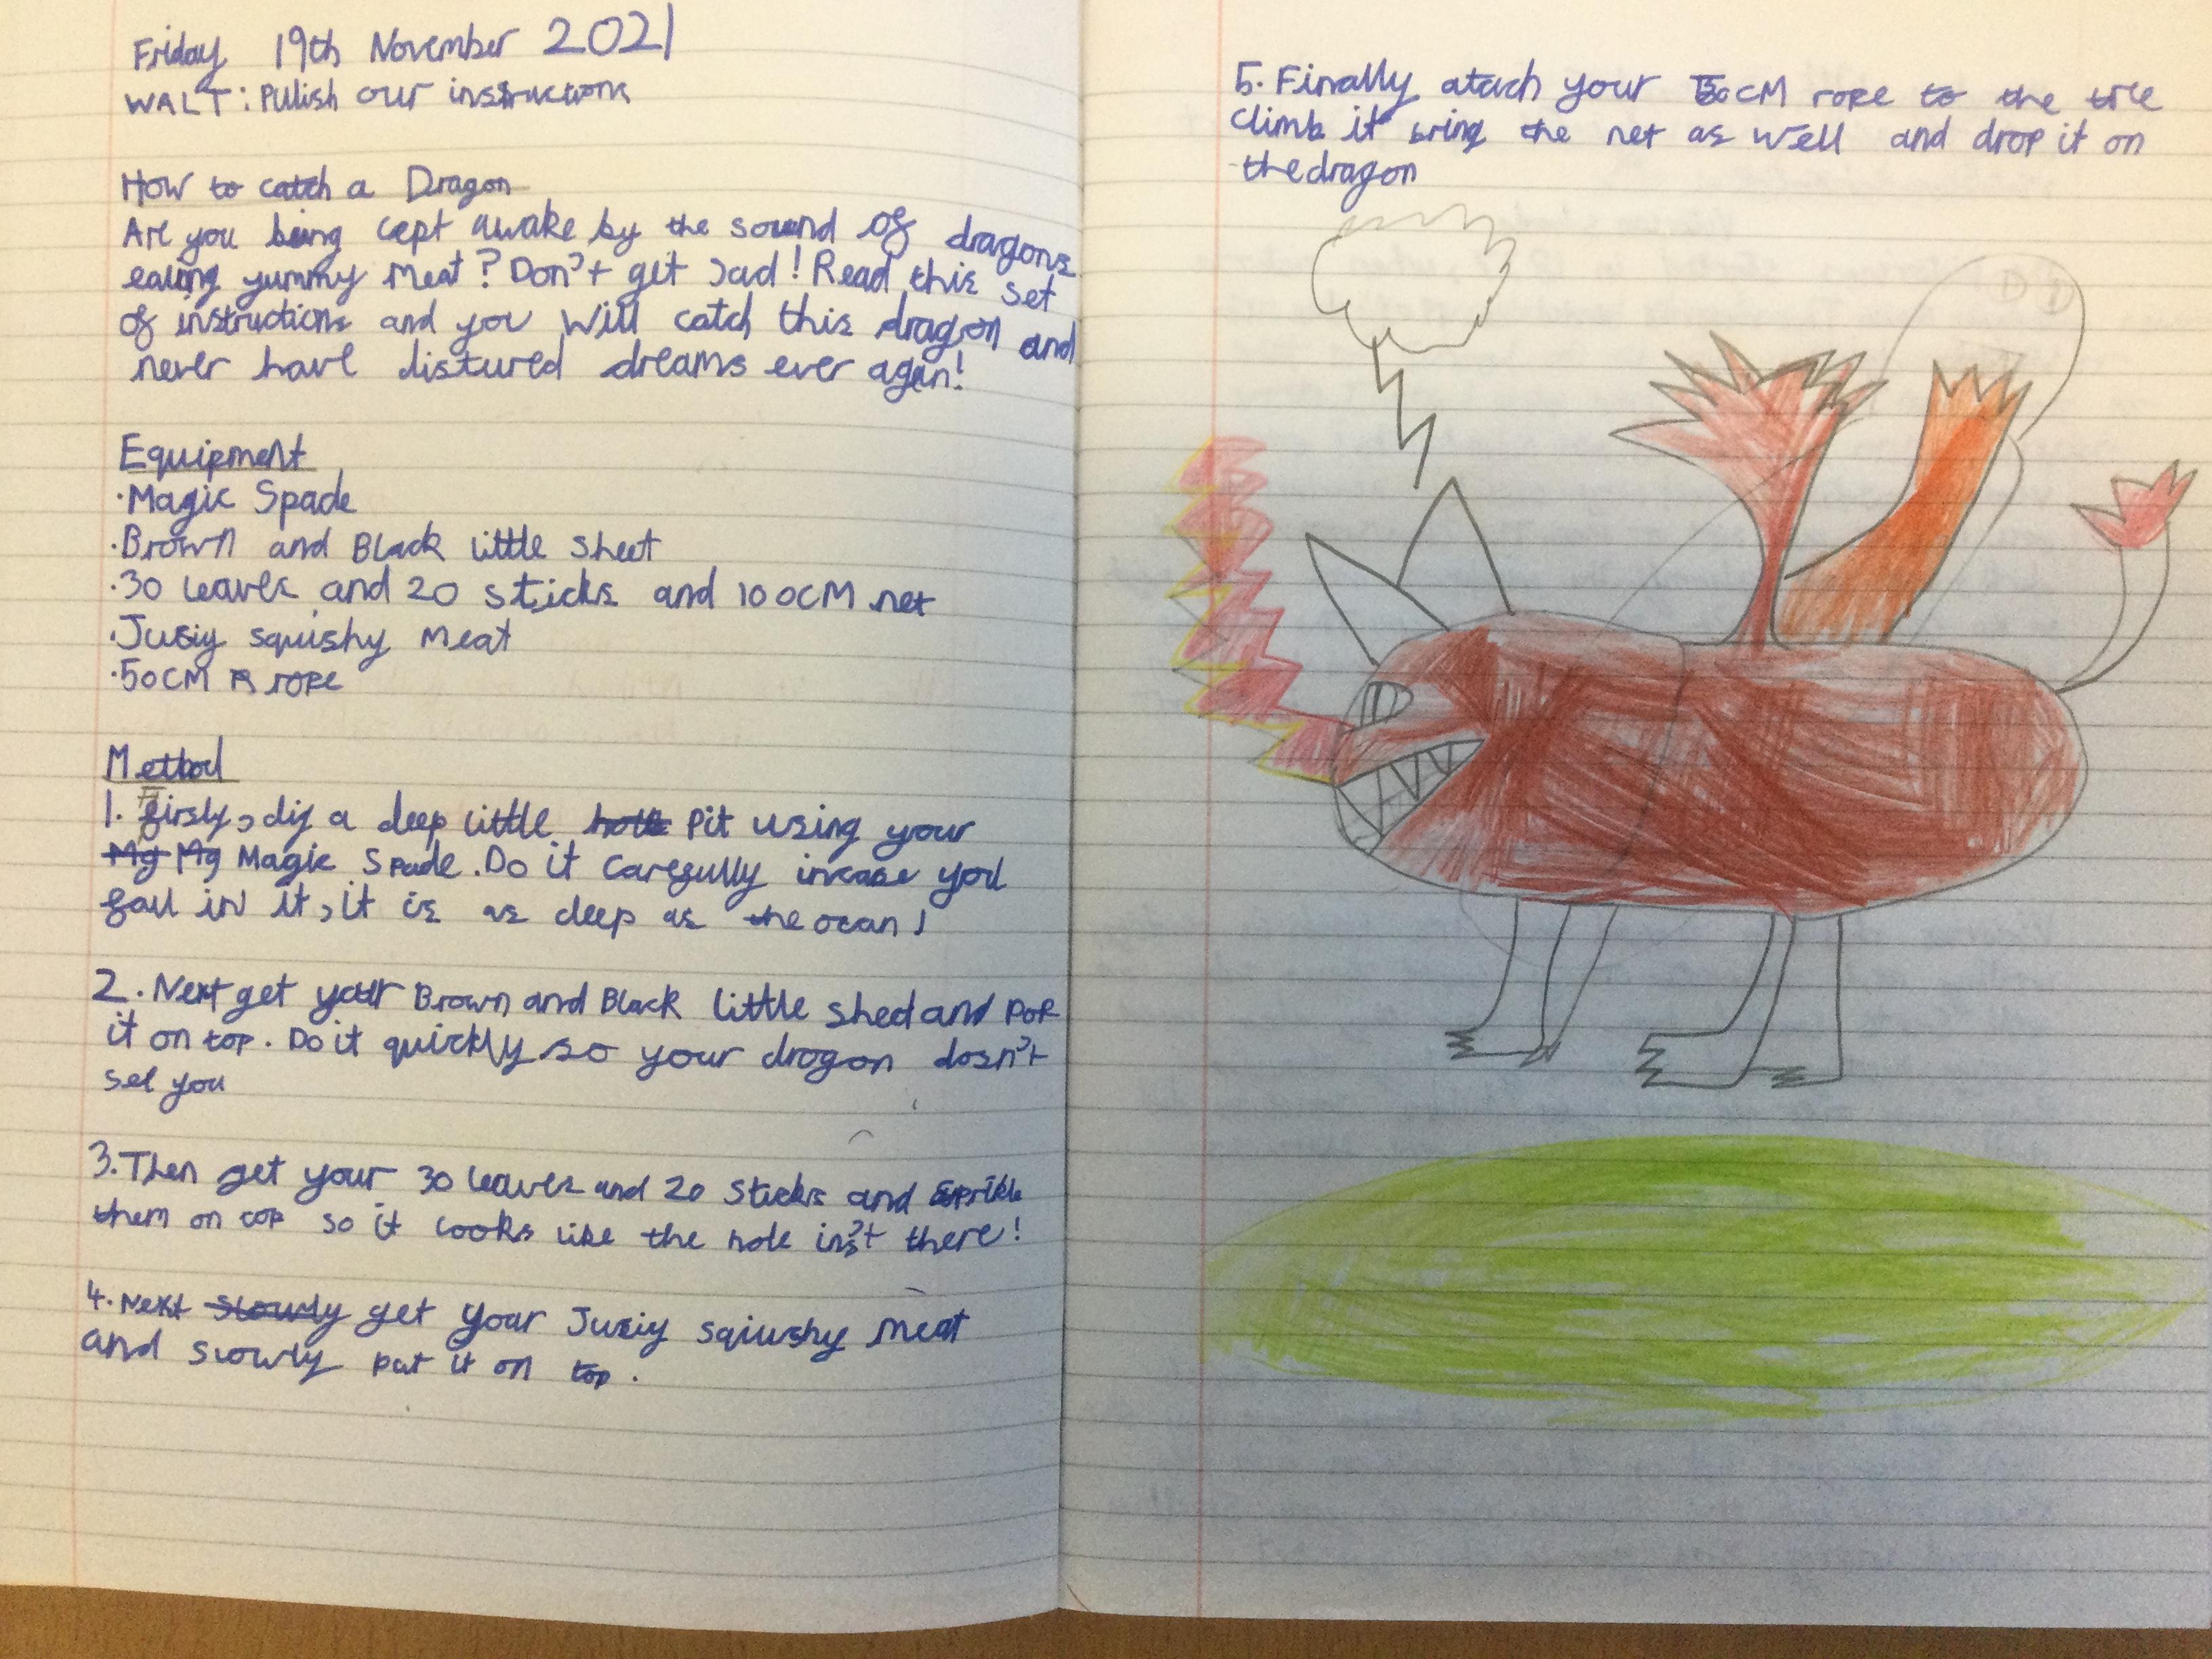 Friday 19th November 2021
WALT: Pulish our instructions
How to catch a Dragon
Are you being cept awake by the sound of dragons
eating yummy meat? Don't get sad! Read this set
of instructions and you will catch this dragon and
never have distured dreams ever again!
Equipment
·Magic Spade
·Brown and Black little sheet
·30 leaves and 20 sticks and 100CM net
·Jusiy squishy meat
·50CM rope
Method
1. firsly, dig a deep little pit using your
Magic Spade. Do it carefully incase you
fall in it, it is as deep as the ocan!
2. Next get your Brown and Black little shed and por
it on top. Do it quickly so your drogon dosn't
see you
3. Then get your 30 leaves and 20 sticks and sprikle
them on top so it looks like the hole ins't there!
4. Next get your Jusiy sqiushy meat
and slowly put it on top.
5. Finally atach your 50CM rope to the tree
climb it bring the net as well and drop it on
the dragon